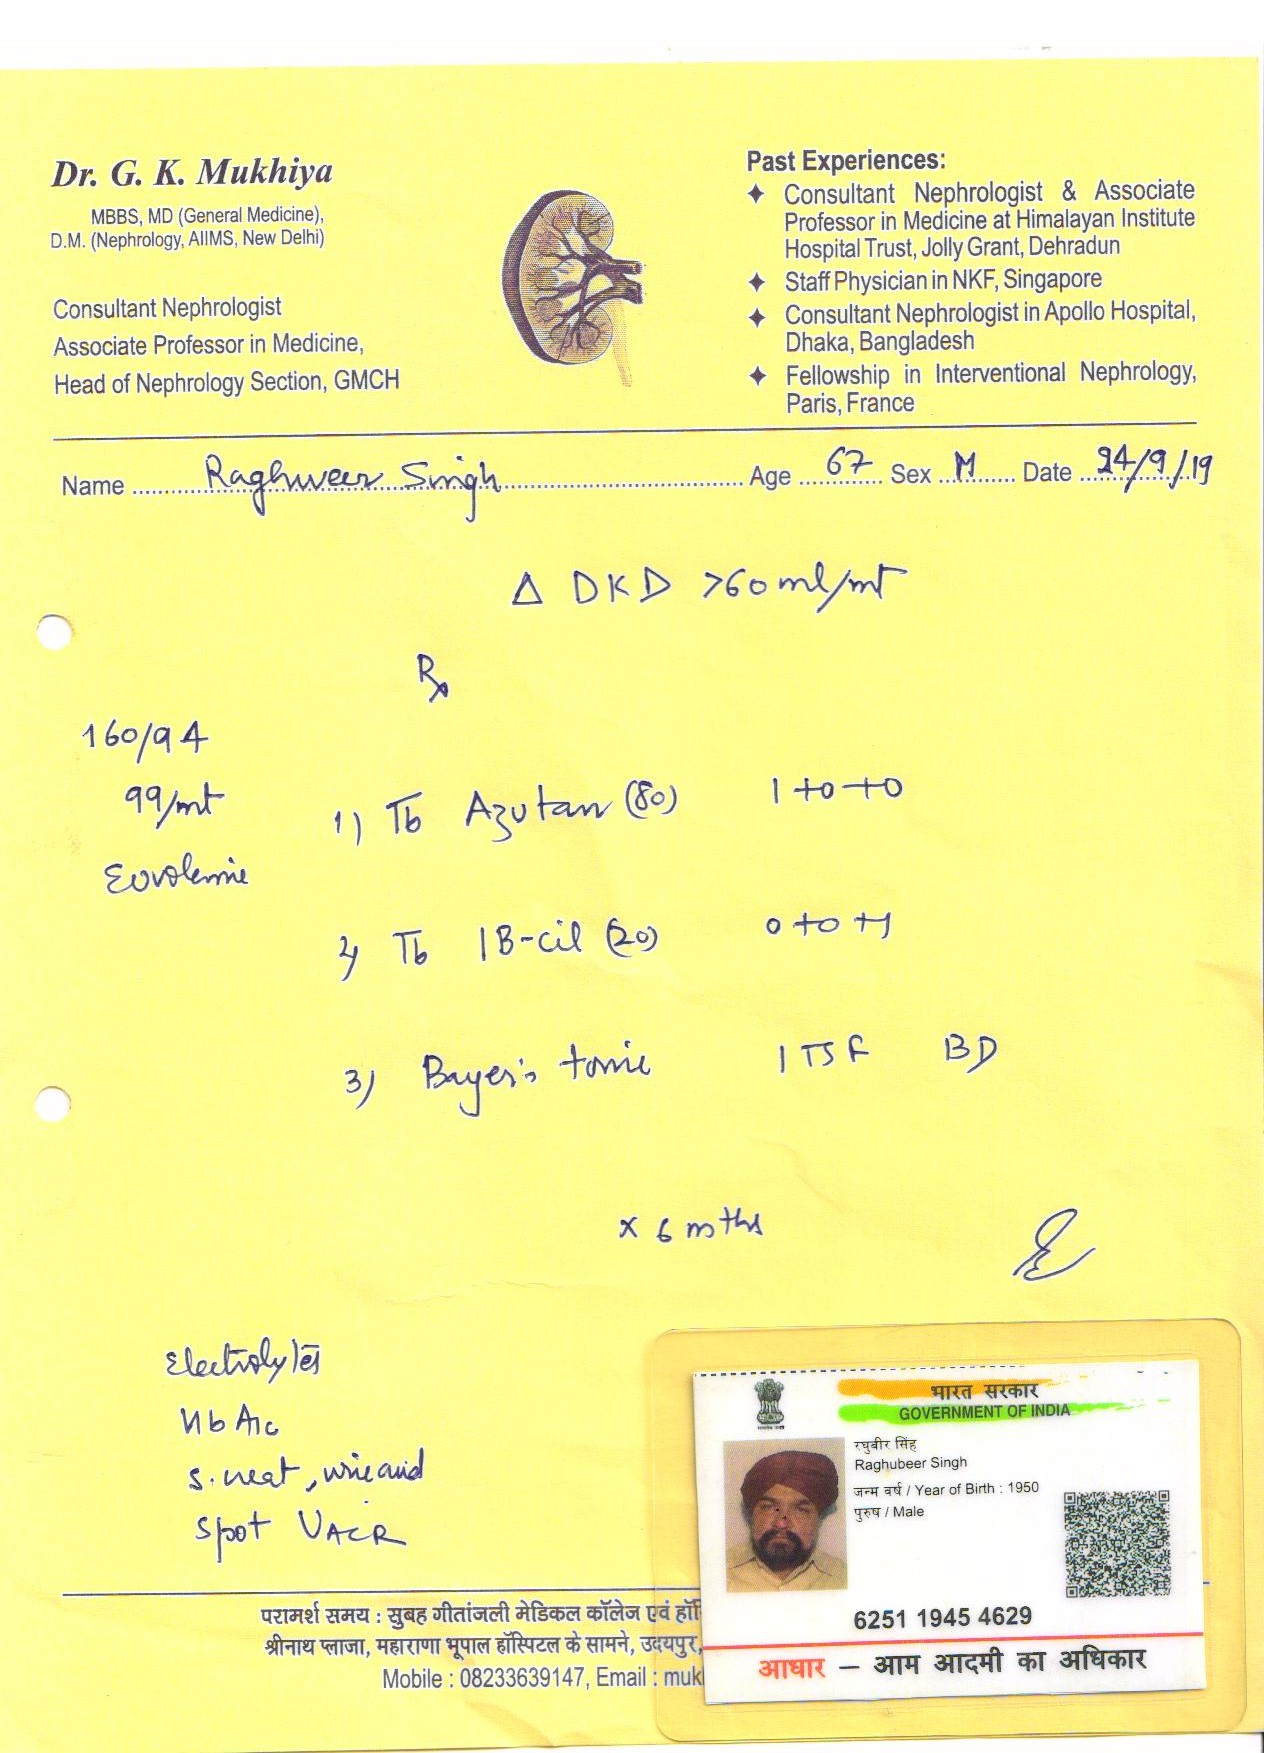 Dr. G. K. Mukhiya
MBBS, MD (General Medicine),
D.M. (Nephrology, AIIMS, New Delhi)
Consultant Nephrologist
Associate Professor in Medicine,
Head of Nephrology Section, GMCH
Past Experiences:
✦ Consultant Nephrologist & Associate
Professor in Medicine at Himalayan Institute
Hospital Trust, Jolly Grant, Dehradun
✦ Staff Physician in NKF, Singapore
✦ Consultant Nephrologist in Apollo Hospital,
Dhaka, Bangladesh
✦ Fellowship in Interventional Nephrology,
Paris, France
Name Raghuveer Singh Age 67 Sex M Date 24/9/19
Δ DKD >60 ml/mt
Rx
160/94
99/mt
Euvolemic
1) Tb Azutan (80) 1+0+0
2) Tb IB-cil (20) 0+0+1
3) Bayer's tonic 1 TSF BD
x 6 mths
Electrolytes
HbA1c
S. creat, uric acid
Spot UACR
भारत सरकार
GOVERNMENT OF INDIA
रघुबीर सिंह
Raghubeer Singh
जन्म वर्ष / Year of Birth : 1950
पुरुष / Male
6251 1945 4629
आधार – आम आदमी का अधिकार
परामर्श समय : सुबह गीतांजली मेडिकल कॉलेज एवं हॉ
श्रीनाथ प्लाजा, महाराणा भूपाल हॉस्पिटल के सामने, उदयपुर,
Mobile : 08233639147, Email : muk